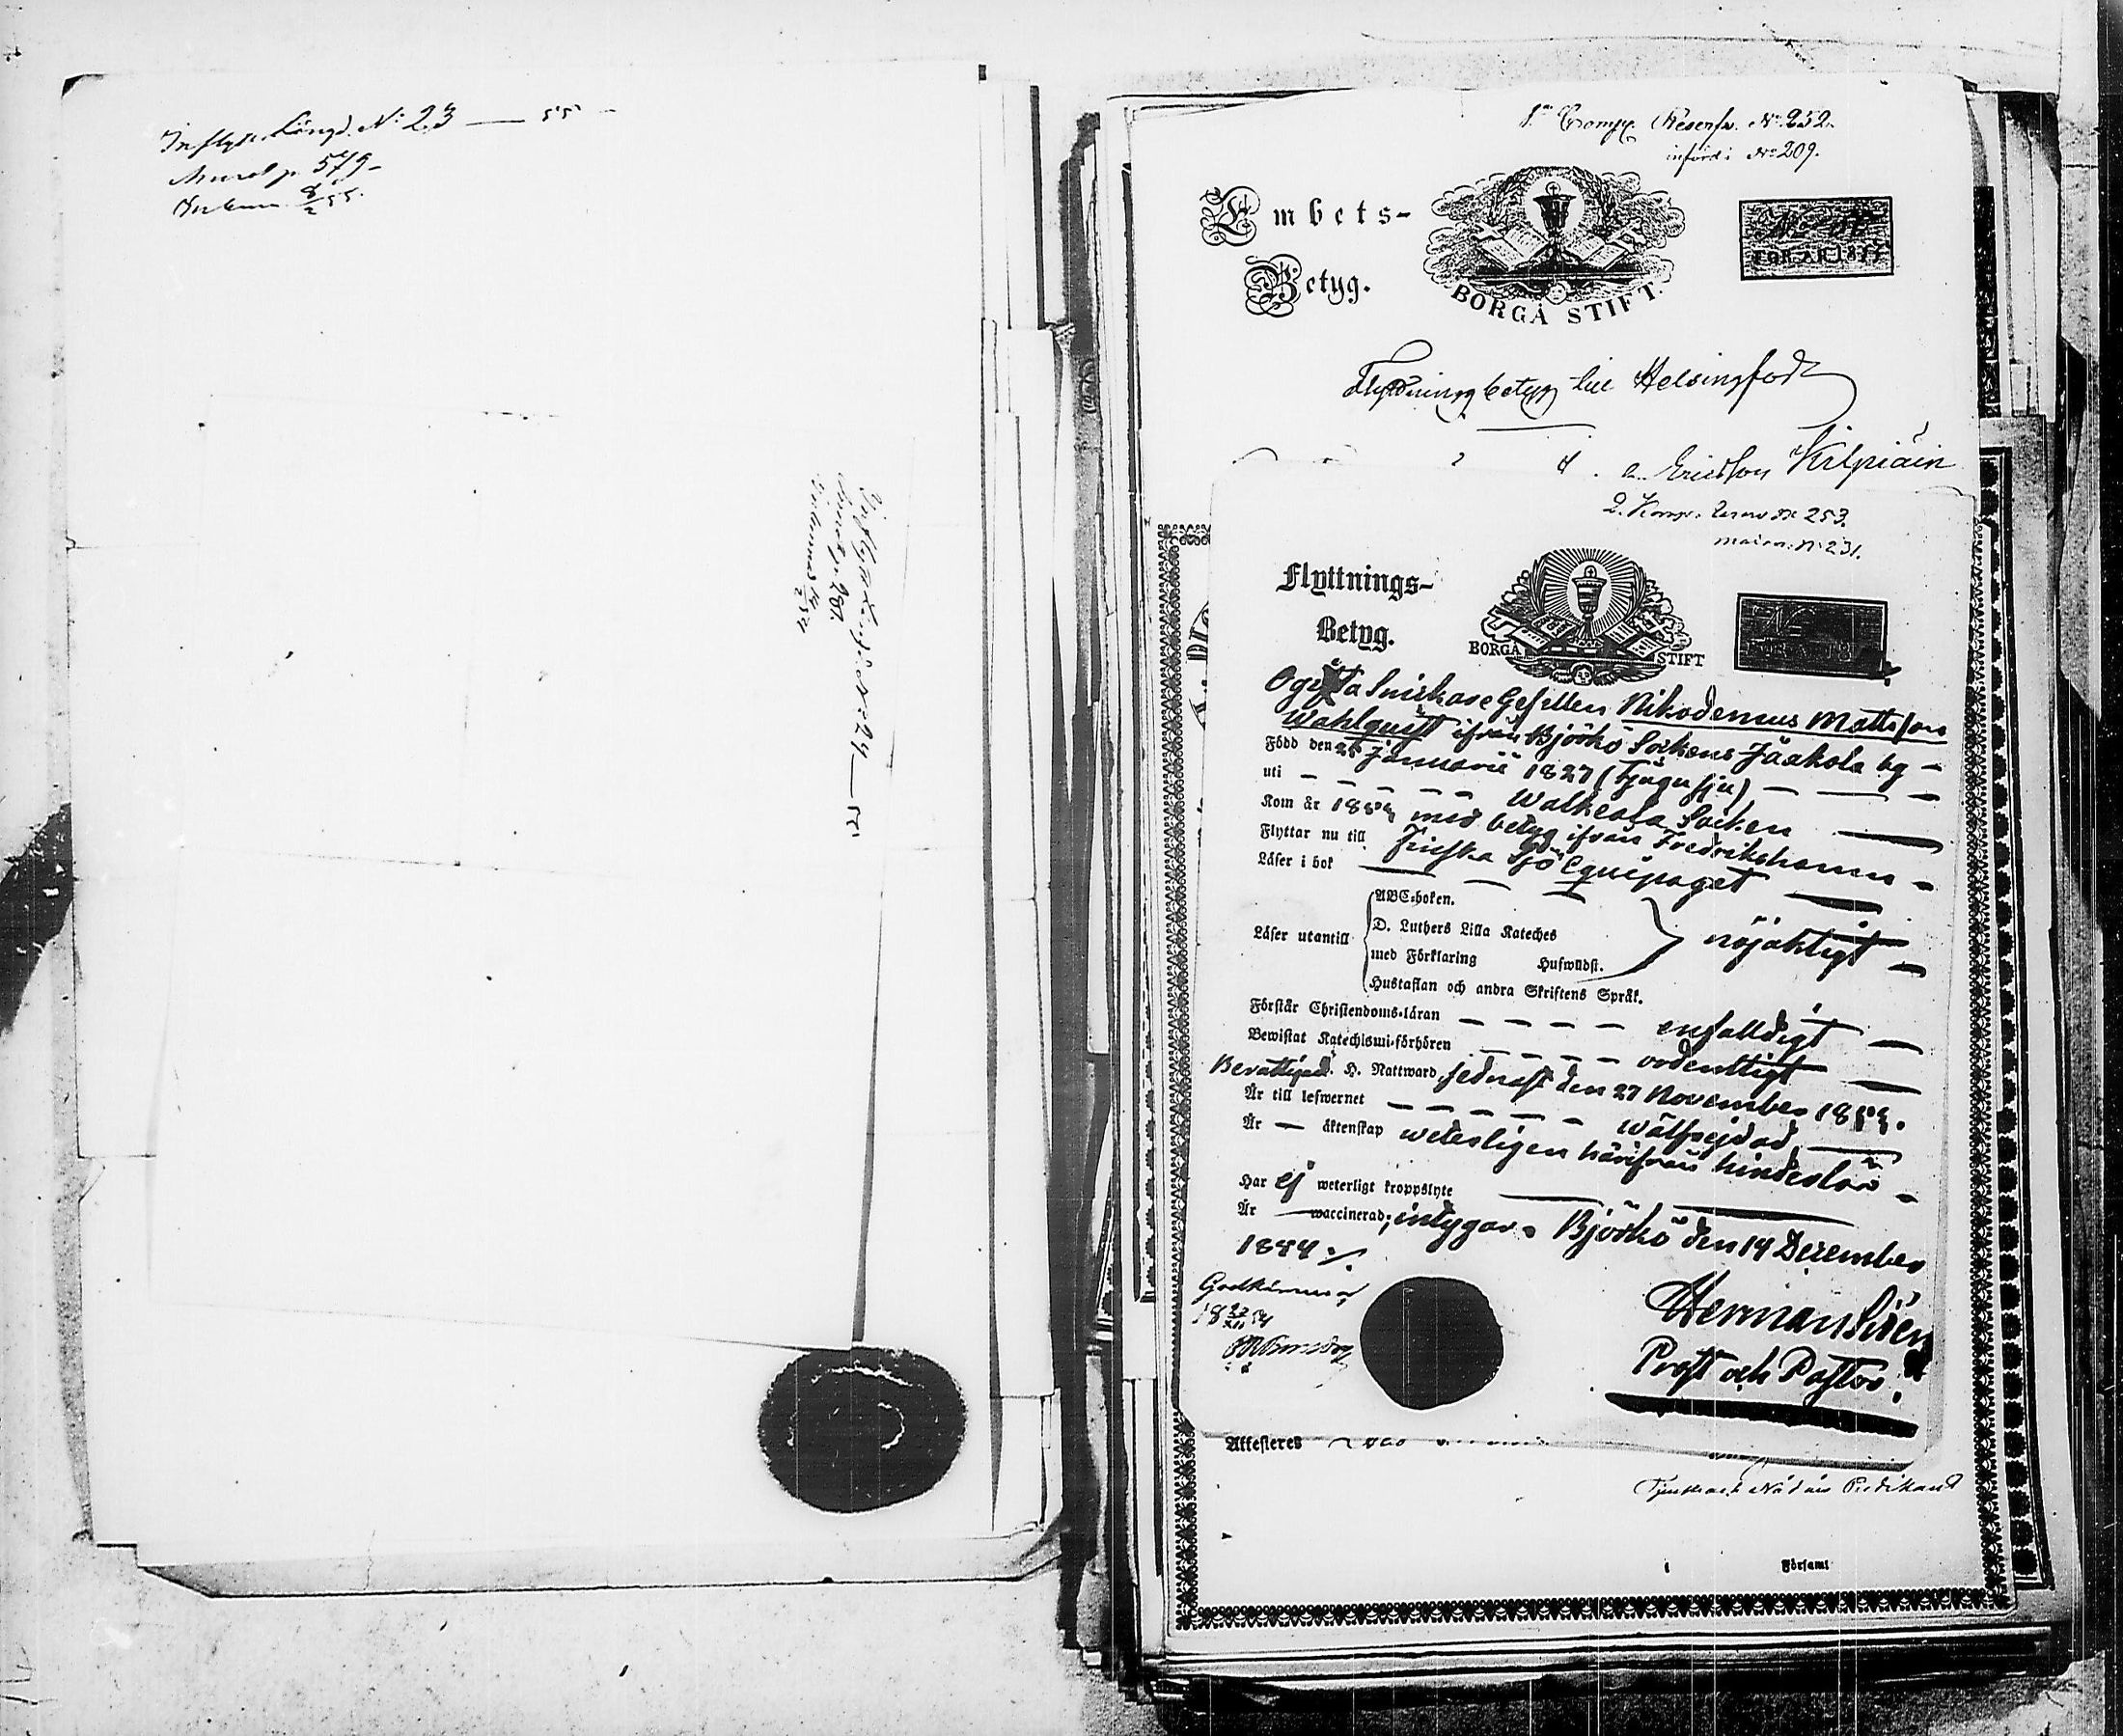 Inflyttn. Längd. N: 23 — 55
Munsal p. 579
Inkom. 8/2 55.
Längden N: 24 — 55
p. 281.
Inkommed 14/2 54
1sta Comp. Reserfv. No. 252.
införd i No 209.
Embets-
Betyg.
BORGÅ STIFT.
FÖR ÅR 18
Flyttningsbetyg till Helsingfors
Ericsson Kilpiäin
2. Komp. Reserv No 253.
N: 231.
Flyttnings-
Betyg.
BORGÅ STIFT
Ogifta Snickare Gesellen Nikodemus Mattsson
Wahlquist ifrån Björkö Sockens Jaakola by —
Född den 25 Januarii 1827 (tjugusju) — — —
uti — — — — — Walkeala Socken —
Kom år 1853 med betyg ifrån Fredrikshamn —
Flyttar nu till Finska Sjö Equipaget —
Läser i bok — — —
Läser utantill
ABC-boken.
D. Luthers Lilla Kateches
med Förklaring Hufwudst.
Hustaflan och andra Skriftens Språk.
nöjaktigt —
Förstår Christendoms-läran — — — — enfalldigt —
Bewistat Katechismi-förhören — — — — ordentligt —
Berättigad. H. Nattward, sednast den 27 November 1853.
Är till lefwernet — — — — — wälfrejdad —
Är — äktenskap weterligen härifrån hinderlös —
Har ej weterligt kroppslyte —
Är — waccinerad; intygar. Björkö den 14 December
1854 ./.
Godkännes
18 27/XII 54
Herman Sirén
Prost och Pastor.
Attesteras
Tjenstförr. Nådårs Predikant
Församl